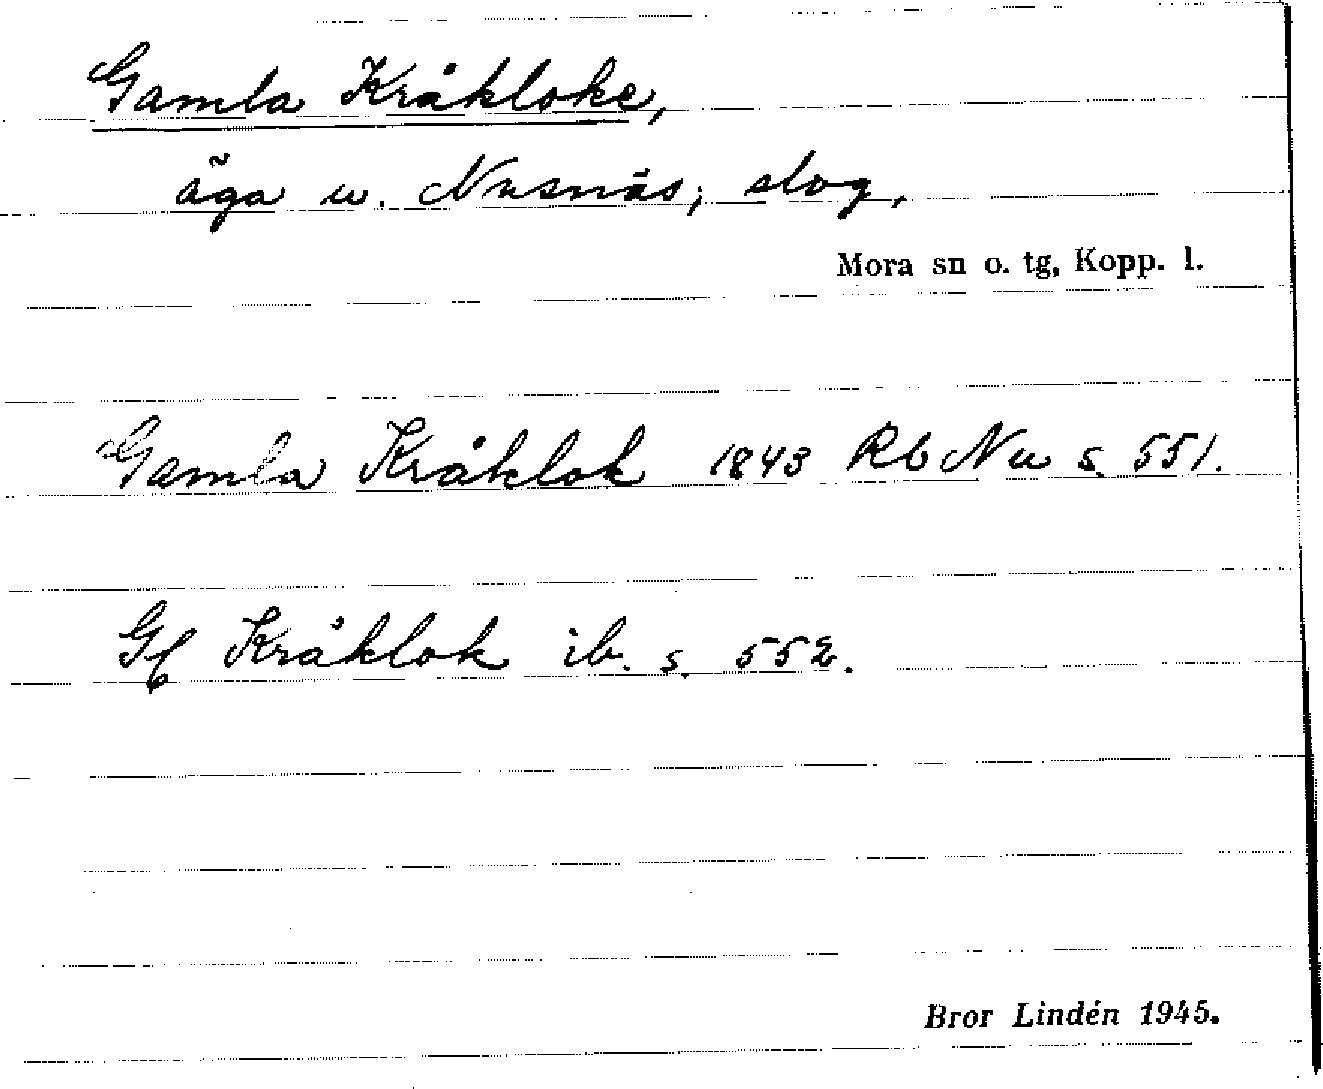 Gamla Kråkloke,
äga u. Nusnäs; slog,
Mora sn o. tg, Kopp. l.
Gamla Kråklok 1843 Rb Nu s. 551.
Gl Kråklok ib. s. 552.
Bror Lindén 1945.